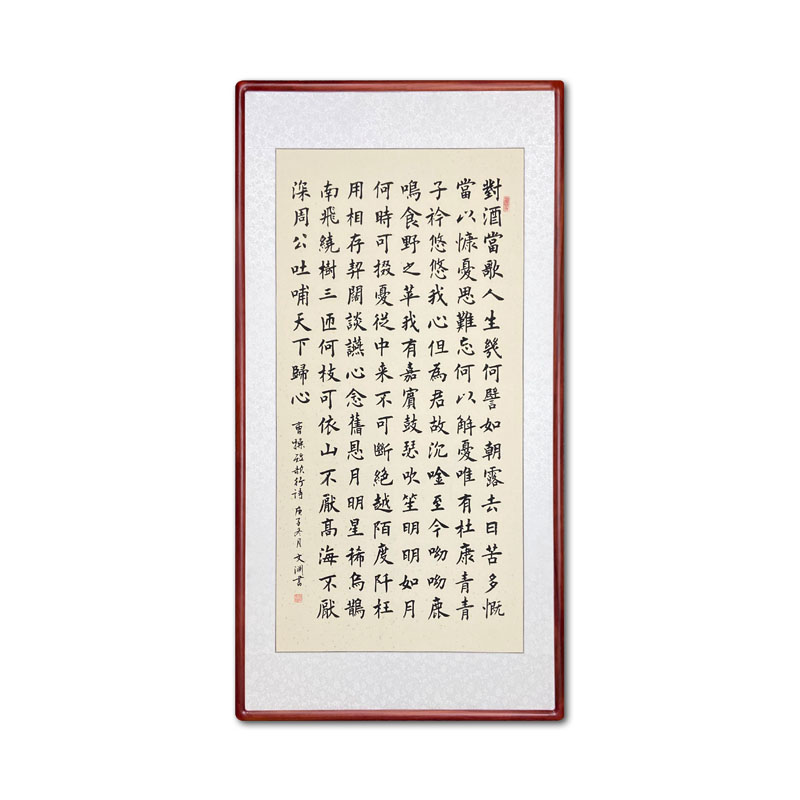 對酒當歌人生幾何譬如朝露去日苦多慨
當以慷憂思難忘何以解憂唯有杜康青青
子衿悠悠我心但為君故沉唫至今呦呦鹿
鳴食野之苹我有嘉賓鼓瑟吹笙明明如月
何時可掇憂從中来不可斷絕越陌度阡枉
用相存契闊談讌心念舊恩月明星稀烏鵲
南飛繞樹三匝何枝可依山不厭高海不厭
深周公吐哺天下歸心 曹操短歌行詩 庚子冬月 文渊書